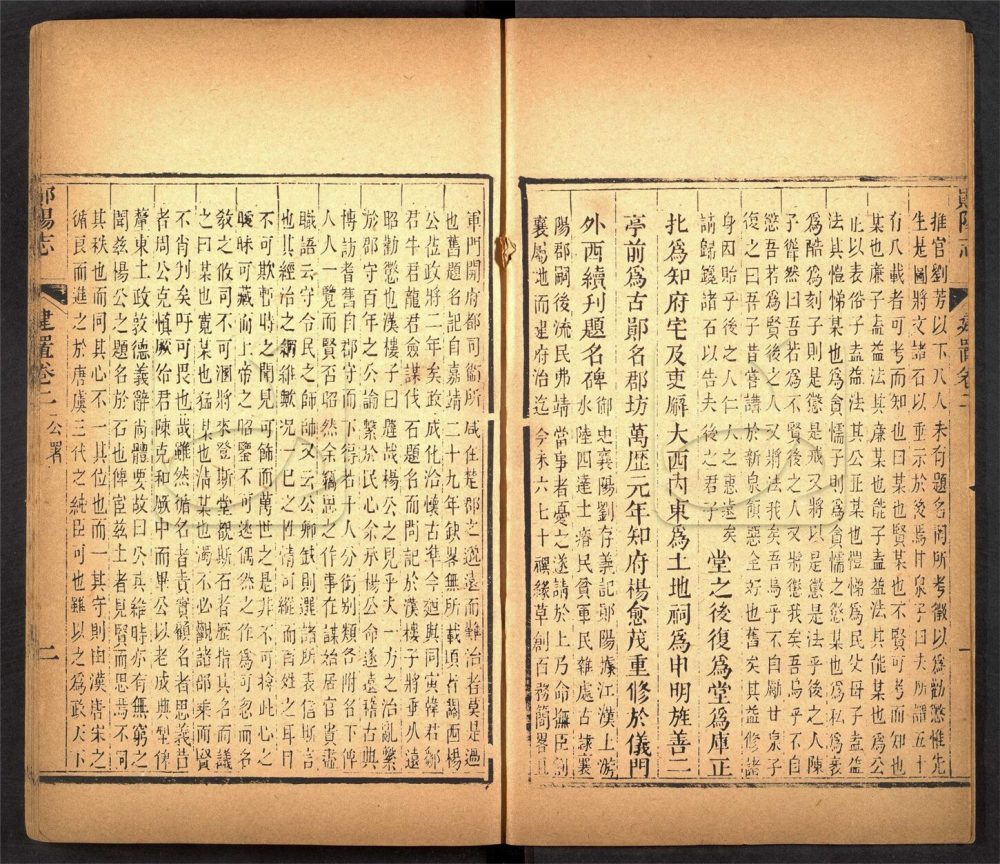 推官劉芳以下八人未有題名闕所考徵以爲勸懲惟先
生是圖將文諸石以垂示於後焉甘泉子曰夫所謂五十
有八載者可考而知也曰某也賢某也不賢可考而知也
某也廉子盍益法其廉某也能子盍益法其能某也爲公
正以表俗子盍法其公正某也愷悌爲民父母子盍益
法其愷悌某也爲貪懦子則爲貪懦之懲某也爲私爲褻
爲酷爲刻子則是懲是戒又將以是懲是法乎後之人陳
子聳然曰吾若爲不賢後之人又將懲我矣吾烏乎不自
慾吾若爲賢後之人又將法我矣吾烏乎不自勵甘泉子
復之曰吾子昔嘗講於新泉傾惡全好也舊矣其益修諸
身因貽乎後之人仁人之惠遠矣 堂之後復爲堂爲庫正
請歸鑱諸石以告夫後之君子
北爲知府宅及吏廨大西內東爲土地祠爲申明旌善二
亭前爲古鄖名郡坊萬歴元年知府楊愈茂重修於儀門
外西續刊題名碑 御史襄陽劉存義記鄖陽據江漢上游
水陸四達土瘠民貧軍民雜處古隷襄
陽郡嗣後流民弗靖當事者憂之遂請於上乃命撫臣割
襄屬地而建府治迄今朱六七十禩緣草創百務簡畧且
鄖陽志 卷二 一
軍門開府都司衞所咸在楚郡之遼遠而難治者莫是過
也舊題名記自嘉靖二十九年缺畧無所載項者關西楊
公莅政將二年矣政成化洽懐古準今廻與同寅偉君鄒
君牛君龍君君僉謀伐石題名而問記於漢樓子將垂永遠
昭勸懲也漢樓子曰題哉楊公之見乎夫一方之治亂繫
於郡守百年之公論繫於民心余承楊公命遂遠稽古典
博訪耆舊自郡守而下得若干人分銜別類各附名下俾
人人一覽而賢否昭然余竊思之作事在謀始居官貴盡
職語云守令民之師帥又云公卿缺則選諸所表信斯言
也其經治之綱維歟况一已之性情可縱而百姓之耳目
不可欺暫時之聞見可飾而萬世之是非不可掩此心之
暧昧可藏而上帝之昭鑒不可逃偶然之作爲可忽而名
敎之攸司不可不可涸將來登斯堂觀斯石者歴指其名而議
之曰某也寬某也猛某也淸某也濁不必觀諸郡乘而賢
不肖判矣吁可畏也哉雖然循名者責實顧名者思義昔
者周公克愼厥始君陳克和厥中而畢公以老成典型俾
釐東土政敦德義辭尚體要故曰公其維時亦有無窮之
聞兹楊公之題名於石也俾宦兹土者見賢而思焉不同
其秩也而同其心不一其位也而一其守則由漢唐宋之
循良而進之於唐虞三代之純臣可也雖以之爲政天下
鄖陽志 建置卷二 公署 二